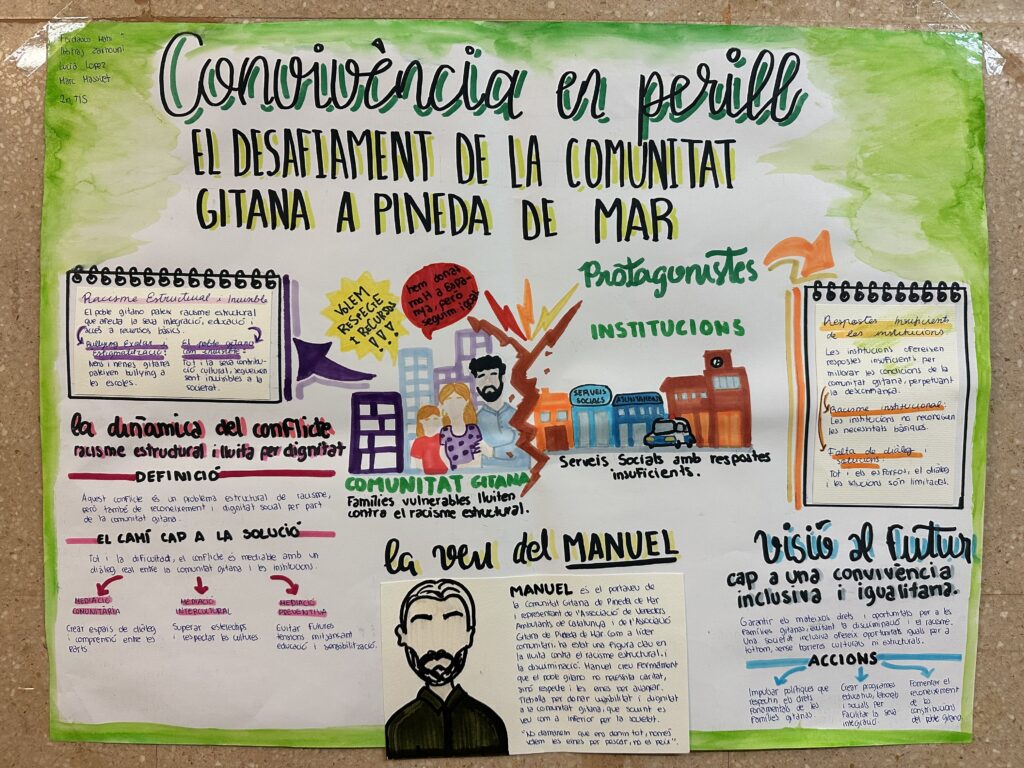 Lucia Lopez
Convivència en perill
EL DESAFIAMENT DE LA COMUNITAT
GITANA A PINEDA DE MAR
Racisme Estructural i Invisible
El poble gitano pateix racisme estructural
que afecta la seva integració, educació i
accés a recursos bàsics.
Bullying Escolar i
estigmatització:
Nens i nenes gitanes
pateixen bullying a
les escoles.
El poble gitano
com invisible:
Tot i la seva contribu-
ció cultural, segueixen
sent invisibles a la
societat.
VOLEM
RESPECTE
I RECURSOS
!!!
hem donat
molt a Espa-
nya, però
seguim igual
Protagonistes
INSTITUCIONS
SERVEIS
SOCIALS
AJUNTAMENT
COMUNITAT GITANA
Famílies vulnerables lluiten
contra el racisme estructural.
Serveis Socials amb respostes
insuficients.
Respostes insuficient
de les institucions
Les institucions ofereixen
respostes insuficients per
millorar les condicions de la
comunitat gitana, perpetuant
la desconfiança.
Racisme institucional:
Les institucions no reconeixen
les necessitats bàsiques.
Falta de diàleg i
solucions:
Tot i els esforços, el diàleg
i les solucions són limitades.
la dinàmica del conflicte
racisme estructural i lluita per dignitat
DEFINICIÓ
Aquest conflicte és un problema estructural de racisme,
però també de reconeixement i dignitat social per part
de la comunitat gitana.
EL CAMÍ CAP A LA SOLUCIÓ
Tot i la dificultat, el conflicte és mediable amb un
diàleg real entre la comunitat gitana i les institucions.
MEDIACIÓ
COMUNITÀRIA
Crear espais de diàleg
i comprensió entre les
parts
MEDIACIÓ
INTERCULTURAL
Superar estereotips
i respectar les cultures
MEDIACIÓ
PREVENTIVA
Evitar futures
tensions mitjançant
educació i sensibilització.
la veu del MANUEL
MANUEL és el portaveu de
la Comunitat Gitana de Pineda de Mar
i representant de l'Associació de Venedors
Ambulants de Catalunya i de l'Associació
Gitana de Pineda de Mar. Com a líder
comunitari, ha estat una figura clau en
la lluita contra el racisme estructural i
la discriminació. Manuel creu fermament
que el poble gitano no necessita caritat,
sinó respecte i les eines per avançar.
Treballa per donar visibilitat i dignitat
a la comunitat gitana, que sovint es
veu com a inferior per la societat.
"No demanem que ens donin tot, només
volem les eines per pescar, no el peix".
visió al futur
cap a una convivència
inclusiva i igualitària.
Garantir els mateixos drets i oportunitats per a les
famílies gitanes, evitant la discriminació i el racisme.
Una societat inclusiva ofereix oportunitats iguals per a
tothom, sense barreres culturals ni estructurals.
ACCIONS
Impulsar polítiques que
respectin els drets
fonamentals de les
famílies gitanes.
Crear programes
educatius, laborals
i socials per
facilitar la seva
integració.
Fomentar el
reconeixement
de les
contribucions
del poble gitano.